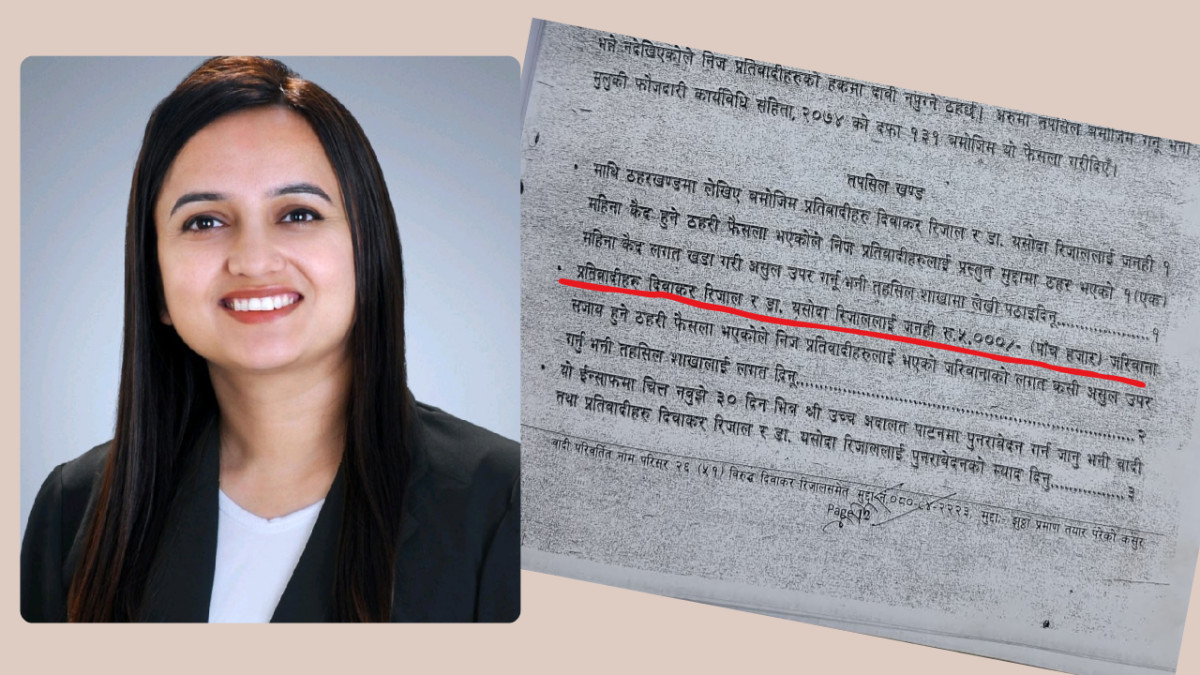 भन्ने नदेखिएकोले निज प्रतिवादीहरुको हकमा दावी नपुग्ने ठहर्छ। अरुमा तपसिल बमोजिम गर्नू भनी
मुलुकी फौजदारी कार्यविधि संहिता, २०७४ को दफा १३१ बमोजिम यो फैसला गरीदिएँ।
तपसिल खण्ड
• माथि ठहरखण्डमा लेखिए बमोजिम प्रतिवादीहरु दिवाकर रिजाल र डा. यसोदा रिजाललाई जनही १
महिना कैद हुने ठहरी फैसला भएकोले निज प्रतिवादीहरुलाई प्रस्तुत मुद्दामा ठहर भएको १(एक)
महिना कैद लगत खडा गरी असुल उपर गर्नू भनी तहसिल शाखामा लेखी पठाइदिनू..............१
• प्रतिवादीहरु दिवाकर रिजाल र डा. यसोदा रिजाललाई जनही रु.५,०००/- (पाँच हजार) जरिवाना
सजाय हुने ठहरी फैसला भएकोले निज प्रतिवादीहरुलाई भएको जरिवानाको लगत कसी असुल उपर
गर्नु भनी तहसिल शाखालाई लगत दिनू..............................२
• यो ईन्साफमा चित्त नबुझे ३० दिन भित्र श्री उच्च अदालत पाटनमा पुनरावेदन गर्न जानु भनी वादी
तथा प्रतिवादीहरु दिवाकर रिजाल र डा. यसोदा रिजाललाई पुनरावेदनको म्याद दिनू..............३
वादी परिवर्तित नाम परिसर २६ (५१) विरुद्ध दिवाकर रिजालसमेत मुद्दा सं.०८०-८४-२२२३ मुद्दाः- झुठ्ठा प्रमाण तयार पारेको कसुर
Page 12